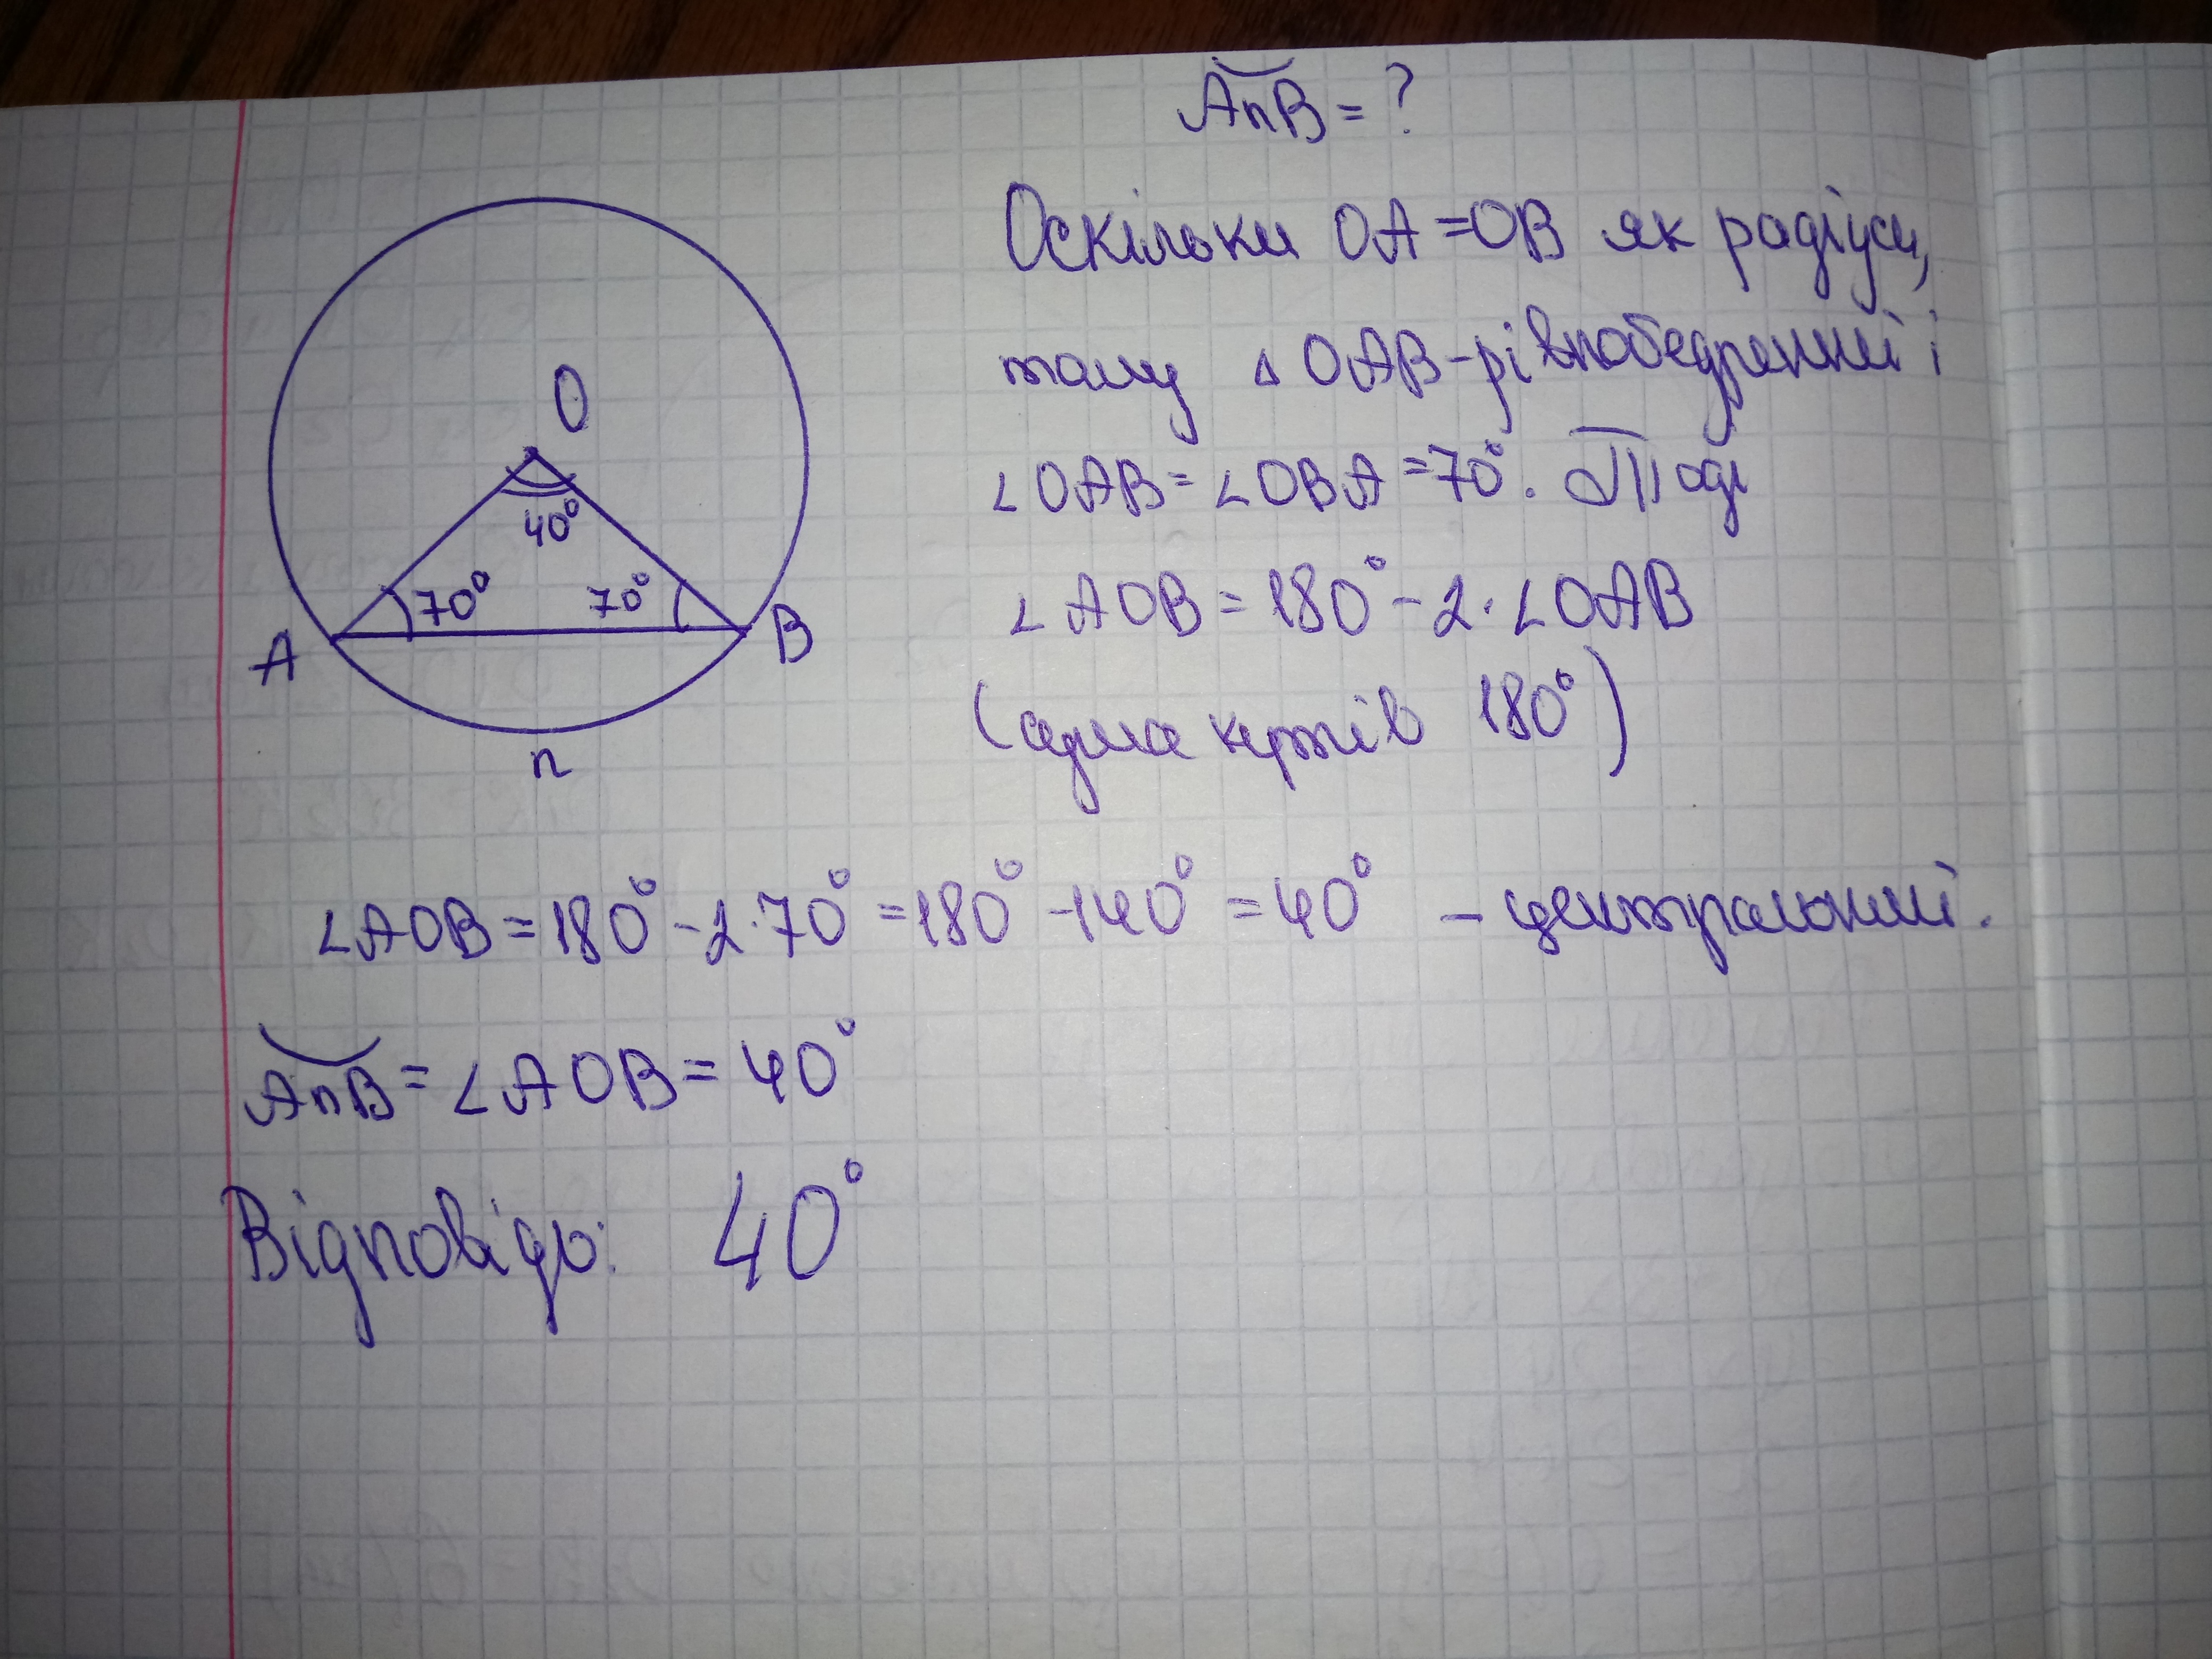 AnB = ?
Оскільки OA = OB як радіуси,
тому △ OAB - рівнобедренний і
∠OAB = ∠OBA = 70°. Тоді
∠AOB = 180° - 2·∠OAB
(сума кутів 180°)
O
40°
70° 70°
A B
n
∠AOB = 180° - 2·70° = 180° - 140° = 40° - центральний.
AnB = ∠AOB = 40°
Відповідь: 40°